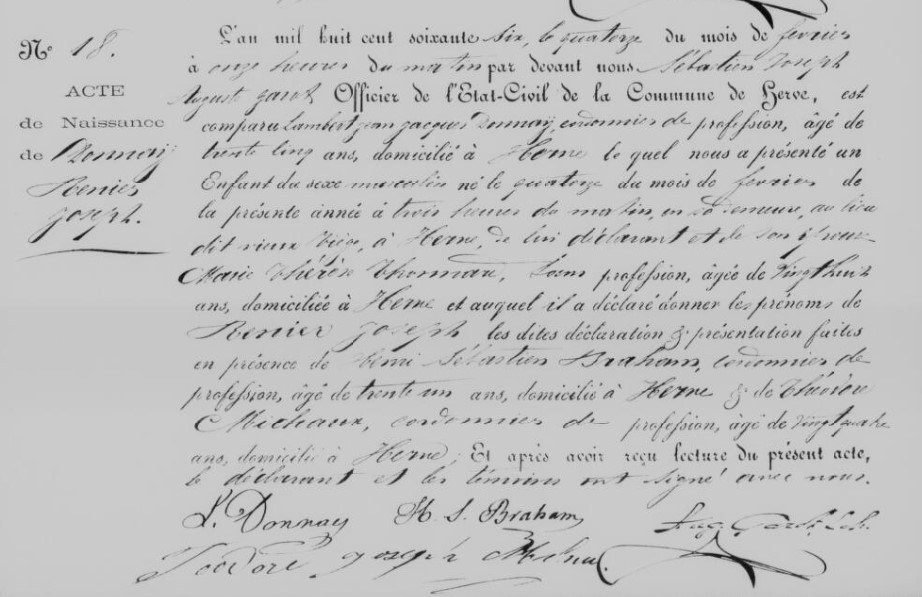 N° 18.
ACTE
de Naissance
de Donnay
Renier
Joseph.
L'an mil huit cent soixante six, le quatorze du mois de fevrier
à onze heures du matin par devant nous Sébastien Joseph
Auguste Garot, Officier de l'Etat-Civil de la Commune de Herve, est
comparu Lambert Jean Jacques Donnay, cordonnier de profession, âgé de
trente cinq ans, domicilié à Herve le quel nous a présenté un
Enfant du sexe masculin né le quatorze du mois de fevrier de
la présente année à trois heures du matin, en sa demeure, au lieu
dit vieux, à Herve, de lui déclarant et de son épouse
Marie Thérèse Thonnard, sans profession, âgée de vingt huit
ans, domiciliée à Herve et auquel il a déclaré donner les prénoms de
Renier Joseph les dites déclaration & présentation faites
en présence de Henri Sébastien Braham, cordonnier de
profession, âgé de trente un ans, domicilié à Herve & de Théodore
Michaux, cordonnier de profession, âgé de vingt quatre
ans, domicilié à Herve; Et après avoir reçu lecture du présent acte,
le déclarant et les témoins ont signé avec nous.
L. Donnay H. S. Braham
Joseph